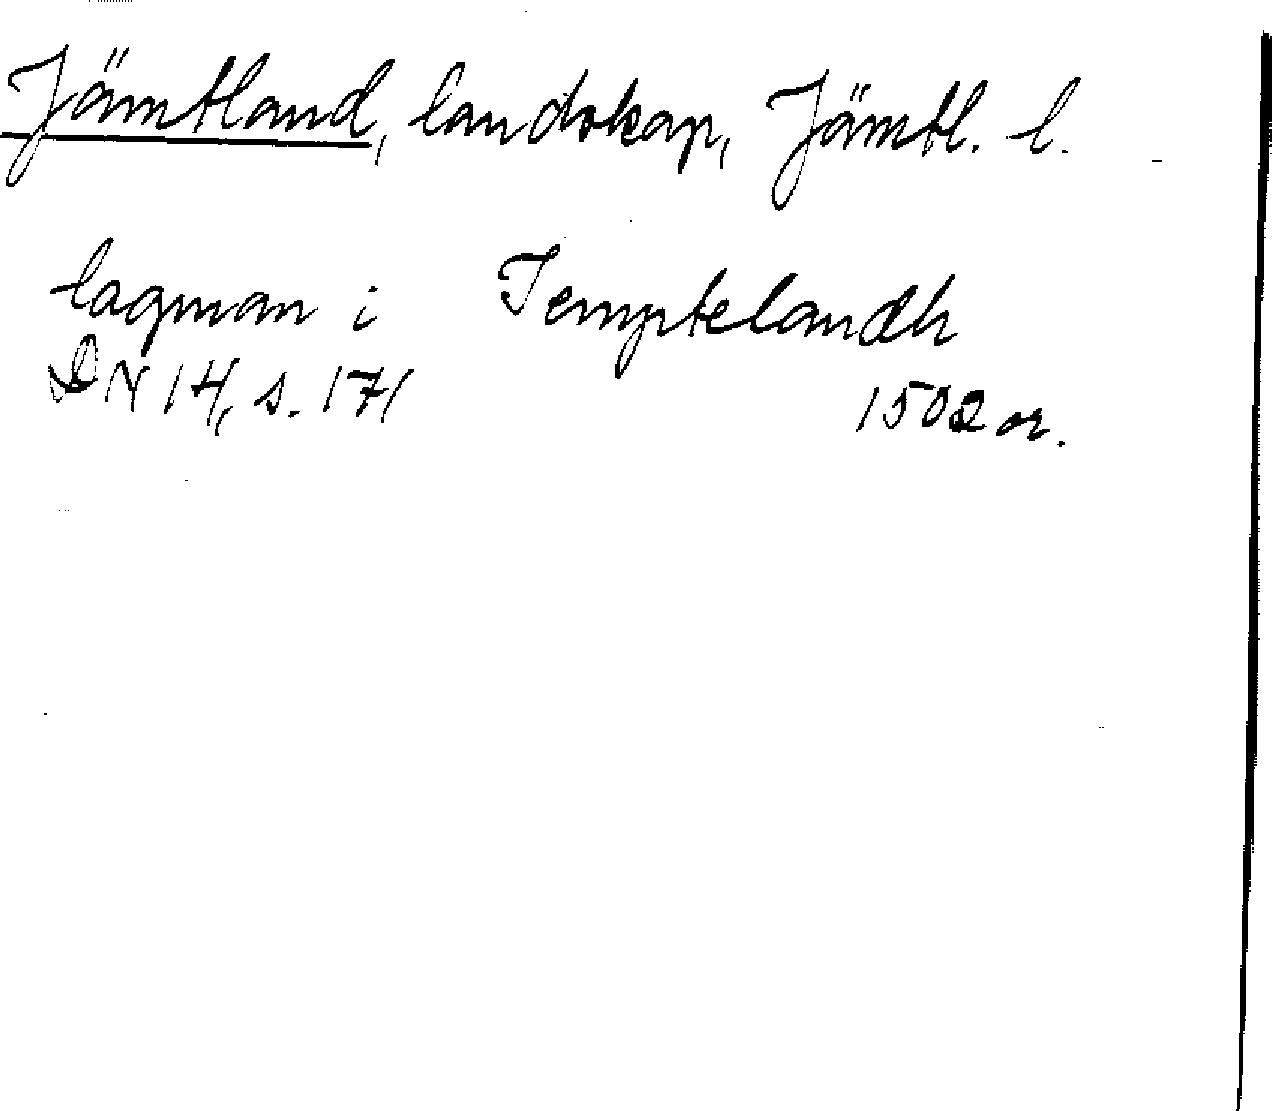 Jämtland, landskap, Jämtl. l.
lagman i Jemptelandh
DN 14, s. 171 1502 or.